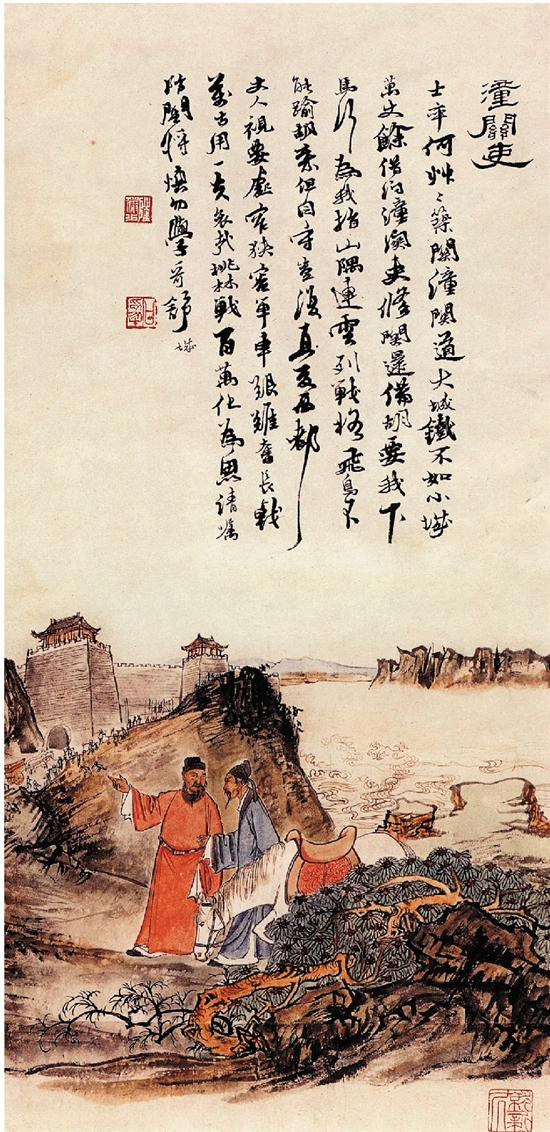 潼關吏
士卒何艸々築關潼關道大城鐵不如小城
萬丈餘借問潼關吏修關還備胡要我下
馬行為我指山隅連雲列戰格飛鳥不
能踰胡來但自守豈復憂西都
丈人視要處窄狹容單車艱難奮長戟
萬古用一夫哀哉桃林戰百萬化為魚請囑
防關將慎勿學哥舒
城